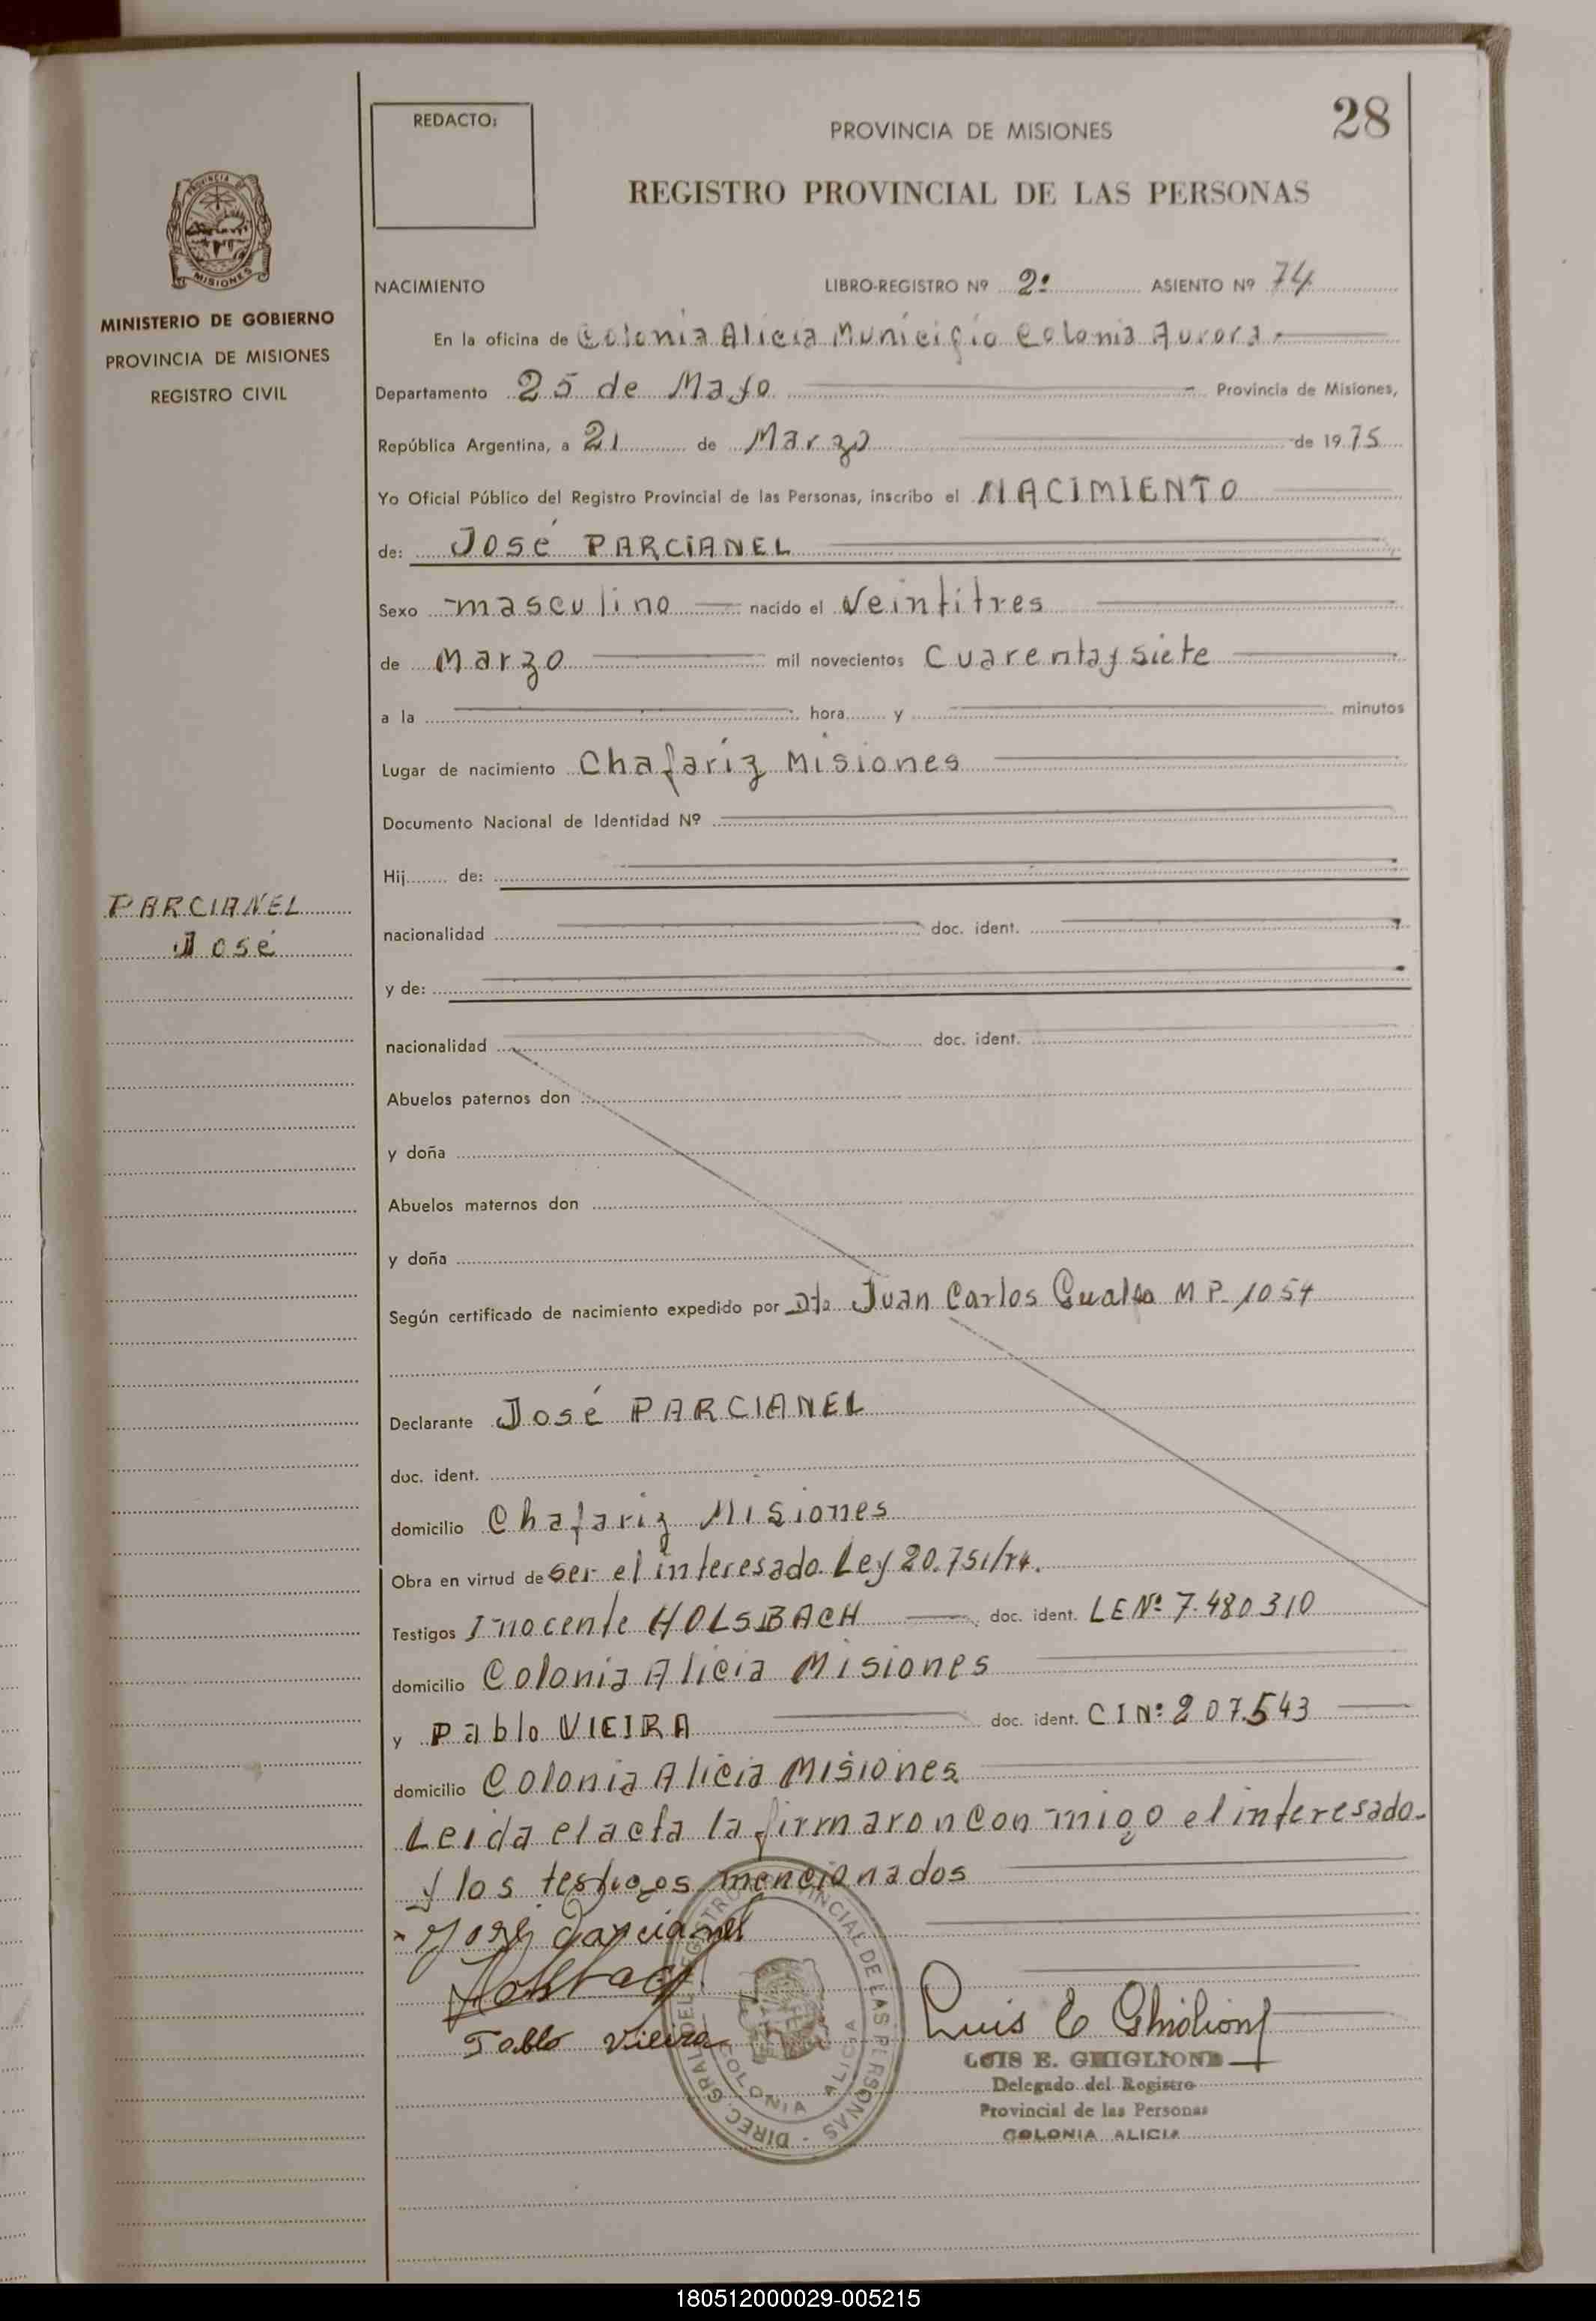 28
REDACTO:
PROVINCIA DE MISIONES
REGISTRO PROVINCIAL DE LAS PERSONAS
PROVINCIA DE
MISIONES
MINISTERIO DE GOBIERNO
PROVINCIA DE MISIONES
REGISTRO CIVIL
NACIMIENTO LIBRO-REGISTRO Nº 2º ASIENTO Nº 74
En la oficina de Colonia Alicia Municipio Colonia Aurora
Departamento 25 de Mayo Provincia de Misiones,
República Argentina, a 21 de Marzo de 1975
Yo Oficial Público del Registro Provincial de las Personas, inscribo el NACIMIENTO
de: José PARCIANEL
Sexo masculino nacido el Veintitres
de Marzo mil novecientos Cuarenta y siete
a la hora y minutos
Lugar de nacimiento Chafariz Misiones
Documento Nacional de Identidad Nº
Hij de:
PARCIANEL
José
nacionalidad doc. ident.
y de:
nacionalidad doc. ident.
Abuelos paternos don
y doña
Abuelos maternos don
y doña
Según certificado de nacimiento expedido por Juan Carlos M P. 1054
Declarante José PARCIANEL
doc. ident.
domicilio Chafariz Misiones
Obra en virtud de ser el interesado. Ley 20.751/74.
Testigos Inocente HOLSBACH doc. ident. LE Nº 7.480310
domicilio Colonia Alicia Misiones
y Pablo VIEIRA doc. ident. C I Nº 207.543
domicilio Colonia Alicia Misiones
Leida el acta la firmaron con migo el interesado
y los testigos mencionados
José Parcianel
Holsbach
Pablo Vieira
DIREC. GRAL. DEL REGISTRO PROVINCIAL DE LAS PERSONAS
COLONIA ALICIA
Luis E Ghiglione
LUIS E. GHIGLIONE
Delegado del Registro
Provincial de las Personas
COLONIA ALICIA
180512000029-005215